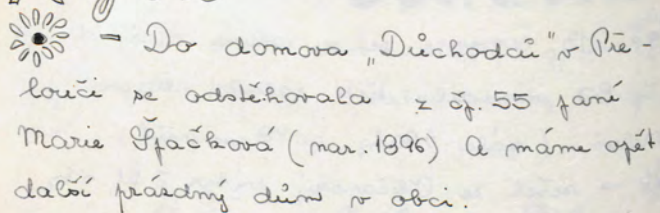 - Do domova „Důchodců" v Pře-
louči se odstěhovala z čp. 55 paní
Marie Špačková (nar. 1896) a máme opět
další prázdný dům v obci.